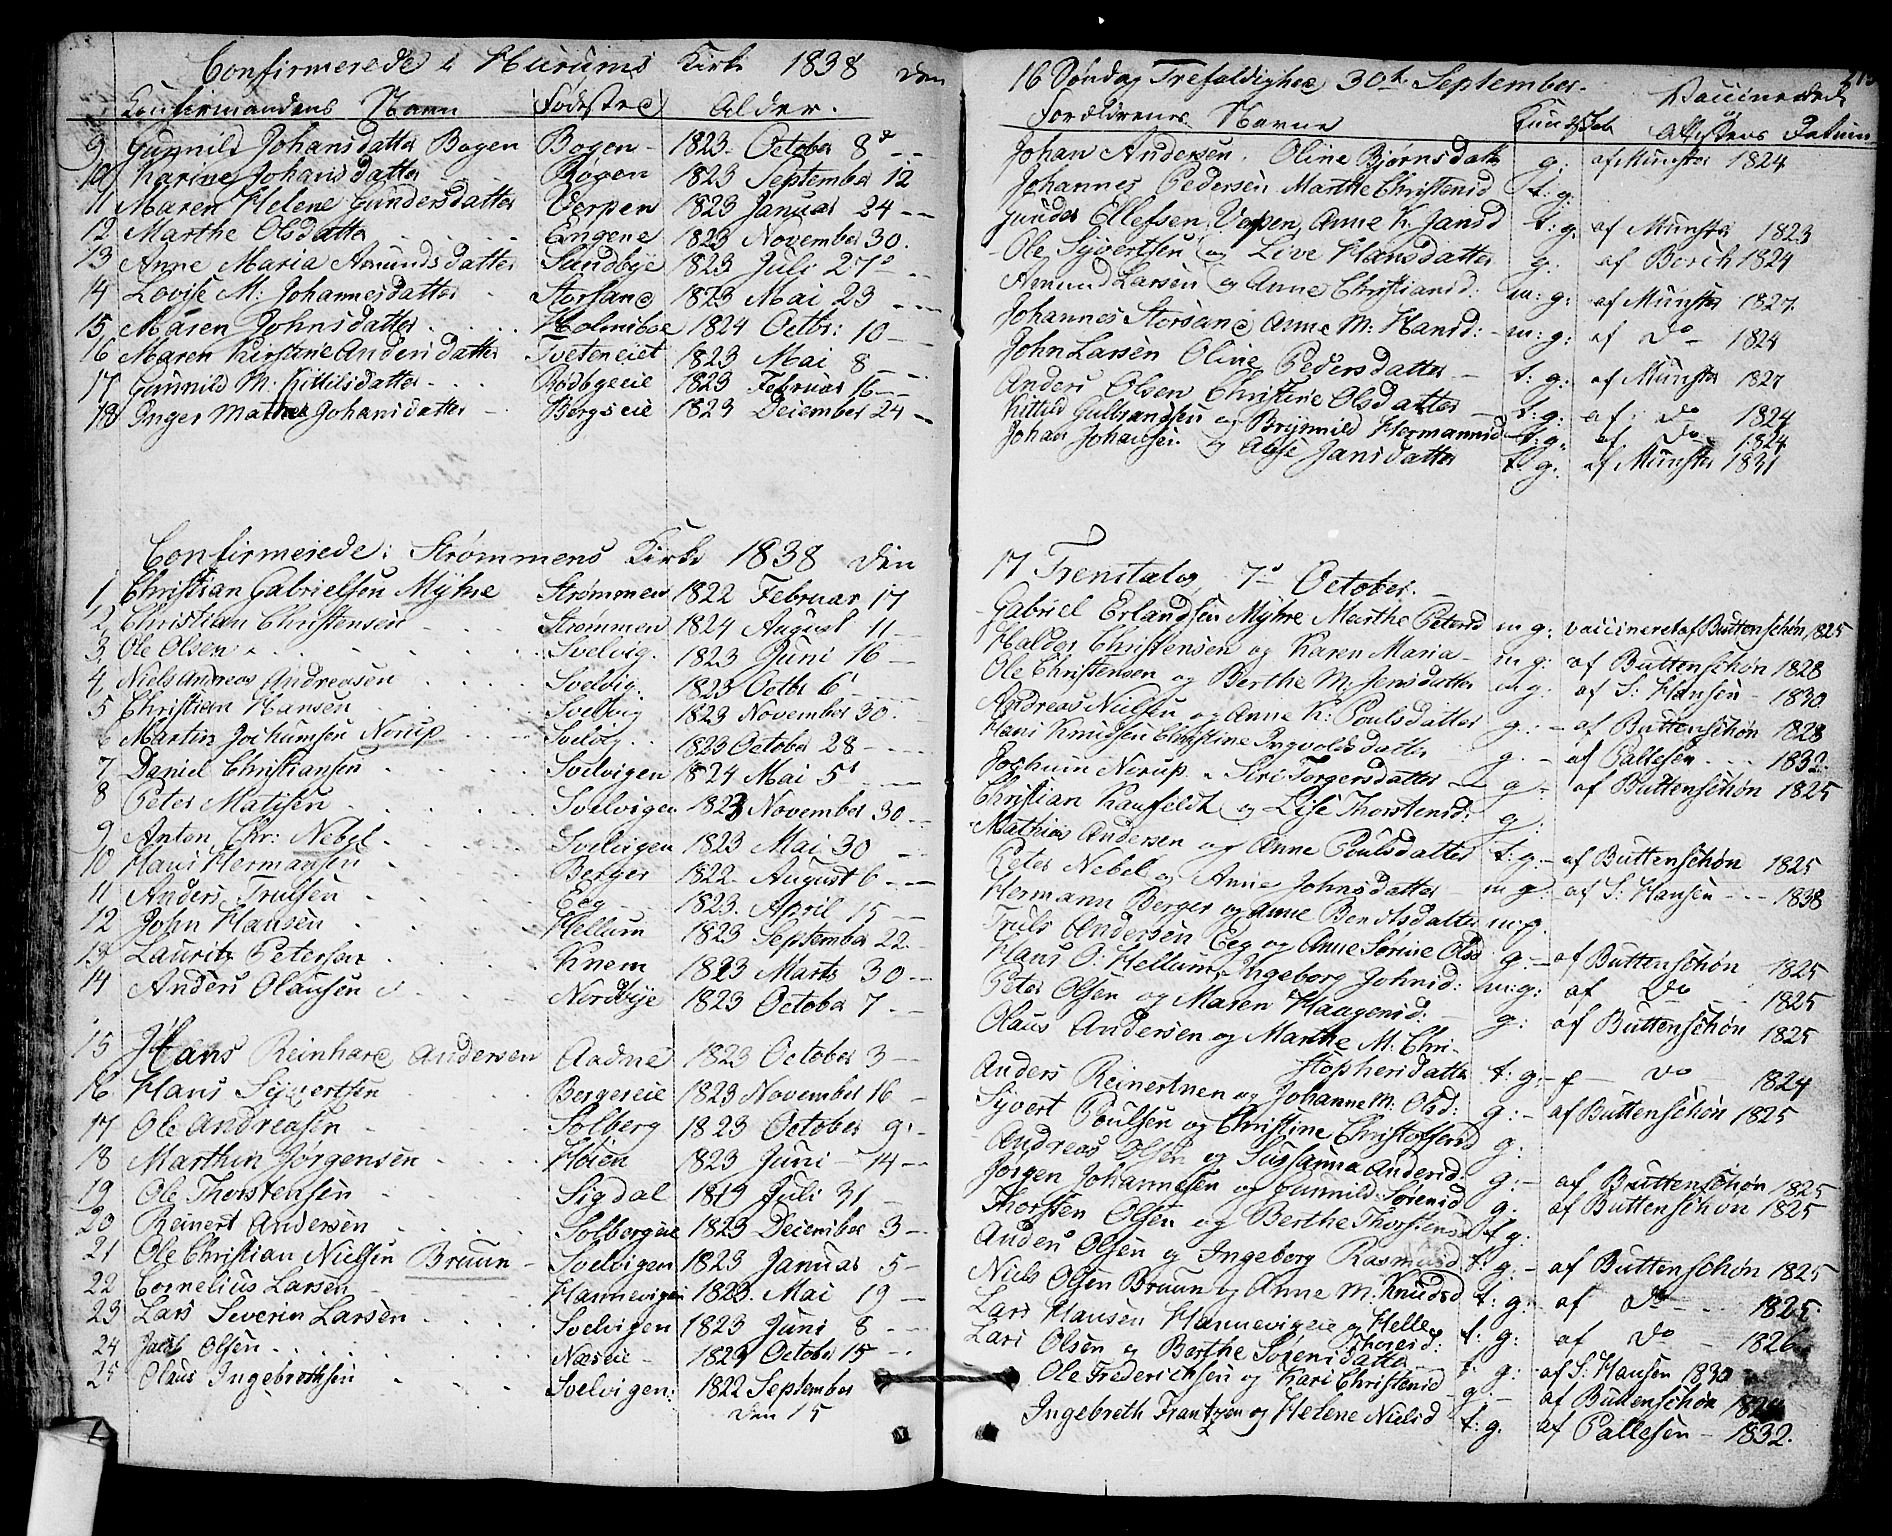 Confirmerede i Hurums Kirke 1838 den
Confirmandens Navn Fødested Alder.
9 Gunnild Johansdatter Bogen Bogen - 1823. October 8de
10 Karine Johansdatter Bøgen 1823 September 12
11 Maren Helene Gundersdatter Verpen 1823 Januar 24
12 Marthe Olsdatter Engene 1823 November 30.
13 Anne Maria Amundsdatter Sandbye 1823 Juli 27
14 Lovise M: Johannesdatter Storsand 1823 Mai 23
15 Maren Johnsdatter Holmsboe 1824 Octbr: 10
16 Maren Kirstine Andersdatter Tveteneiet 1823 Mai 8
17 Gunnild M. Kittilsdatter Rødbyeeie 1823 Februar 16
18 Inger Mathea Johansdatter Bergseie 1823 December 24
Confirmerede i Strømmens Kirke 1838 den
1 Christian Gabrielsen Myhre Strømmen 1822 Februar 17
2 Christian Christensen Strømmen 1824 August 11
3. Ole Olsen Svelvig. 1823 Juni 16
4 Niels Andreas Andreasen Svelvig. 1823 Octbr 6
5 Christian Hansen Svelvig 1823 November 30.
6 Martin Jochumsen Norup Svelvig 1823 October 28
7 Daniel Christiansen Svelvigen 1824 Mai 5
8 Peter Matisen Svelvigen 1823 November 30
9 Anton Chr: Nebel Svelvigen 1823 Mai 30
10 Hans Hermansen Berger 1822. August 6
11 Anders Trulsen Eeg 1823. April 15
12 John Hansen Hellum 1823 September 22.
13 Lauritz Petersen Knem 1823 Marts 30
14 Anders Olausen Nordbye 1823 October 7
15 Hans Reinhard Andersen Aadne 1823 October 3
16 Hans Syvertsen Bergereie 1823 November 16
17 Ole Andreasen Solberg 1823 October 9
18 Marthin Jørgensen Høien 1823 Juni 14
19 Ole Thorstensen Sigdal Juli 31
20 Reinert Andersen Solbergeie 1823 December 3
21 Ole Christian Nielsen Bruun Svelvigen 1823 Januar 5
22 Cornelius Larsen Hannevigen 1823. Mai 19
23 Lars Severin Larsen Svelvigen 1823 Juni 8
24 Jacob Olsen Næseie 1823 October 15
25 Olaus Ingebrethsen Svelvigen: 1822 September
den 15
16 Søndag Trefoldighed 30te September.
Forældrenes Navne Kundskab Vaccinerede
Attestens Datum
Johan Andersen. Oline Bjørnsdatter g: af Munster 1824
Johannes Pedersen Marthe Christensd t: g.
Gunder Ellefsen Verpen Anne K. Jansd t: g. af Munster 1823
Ole Syvertsen og Live Hansdatter g: af Borch 1824
Amund Larsen og Anne Christiansd: m: g: af Munster 1827.
Johannes Storsand Anne M: Hansd: m: g: af Do 1824
John Larsen Oline Pedersdatter t: g: af Munster 1827
Anders Olsen Christine Olsdatter t: g: af Do 1824
Kittil Gulbrandsen og Brynnild Hermannsd t: g. af Do 1824
Johan Johansen og Alise Jansdatter t: g. af Munster 1831
17 Trinitatis 7de October.
Gabriel Erlandsen Myhre Marthe Petersd m g: vaccineret af Buttenschøn 1825
Halder Christensen og Karen Maria m g: af Buttenschøn 1828
Ole Christensen og Berthe M. Jensdatter m g: af S: Hansen 1830
Andreas Nielsen og Anne K: Poulsdatter g: af Buttenschøn 1828
Hans Knudsen Christine Ingvoldsdatter g. af Pallesen 1832.
Jochum Norup Siri Torgersdatter g. af Buttenschøn 1825
Christian Kaufeldt og Lise Thorstensd: g:
Mathias Andersen og Anne Poulsdatter t: g: af Buttenschøn 1825
Peter Nebel og Anne Johnsdatter m g. af S: Hansen 1838
Hermann Berger og Anne Bentsdatter m: g.
Truls Andersen Eeg og Anne Sørine Olsd g. af Buttenschøn 1825
Hans O: Hellum Ingeborg Johnsd: m: g: af Do 1825
Peter Olsen og Maren Haagensd: g: af Buttenschøn 1825
Olaus Andersen og Marthe M. Chri-
stophersdatter t: g: Do 1824
Anders Reinertsen og Johanne M: Olsd: g: af Buttenschøn 1825
Syvert Poulsen og Christine Christoffersd g:
Andreas Olsen og Susanna Andersd: g: af Buttenschøn 1825
Jørgen Johannesen og Gunnild Sørensd g. af Buttenschøn 1825
Thorsten Olsen og Berthe Thorstensd t g:
Anders Olsen og Ingeborg Rasmusd t: g: af Buttenschøn 1825
Niels Olsen Bruun og Anne M. Knudsd t: g: af Do 1825
Lars Hansen Hannevigeie og Helle
Thoresd: t: g: af Do 1826
Lars Olsen og Berthe Sørensdatter t: g: af S: Hansen 1830
Ole Frederichsen og Kari Christensd g. af Buttenschøn
Ingebreth Frantzen og Helene Nielsd t: g. af Pallesen 1832.